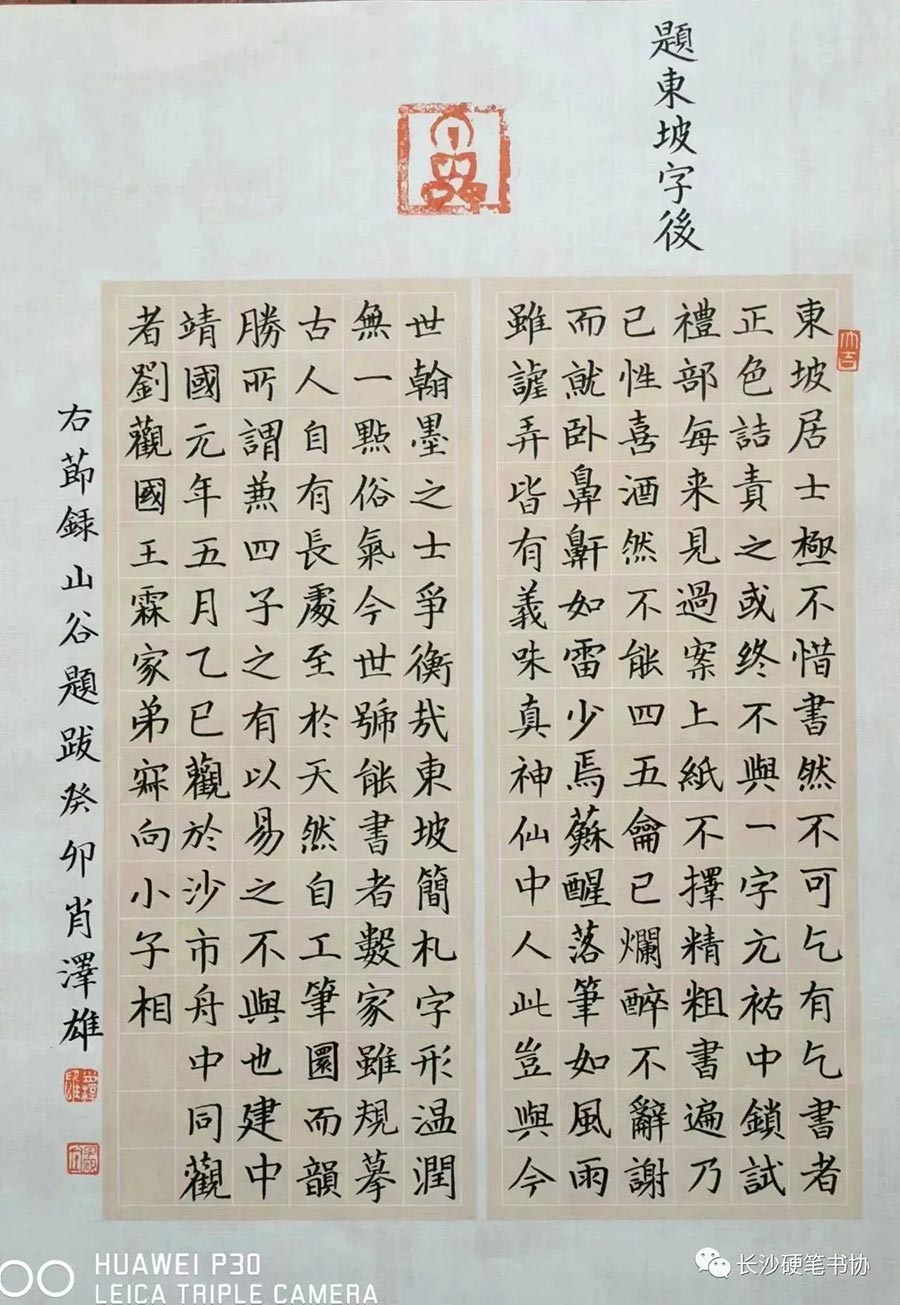 題東坡字後
大吉
東坡居士極不惜書然不可乞有乞書者
正色詰責之或終不與一字元祐中鎖試
禮部每来見過案上紙不擇精粗書遍乃
已性喜酒然不能四五龠已爛醉不辭謝
而就卧鼻鼾如雷少焉蘇醒落筆如風雨
雖謔弄皆有義味真神仙中人此豈與今
世翰墨之士爭衡㦲東坡簡札字形温潤
無一點俗氣今世號能書者數家雖規摹
古人自有長處至於天然自工筆圜而韻
勝所謂兼四子之有以易之不與也建中
靖國元年五月乙巳觀於沙市舟中同觀
者劉觀國王霖家弟寐向小子相
右節録山谷題跋癸卯肖澤雄
HUAWEI P30
LEICA TRIPLE CAMERA
长沙硬笔书协